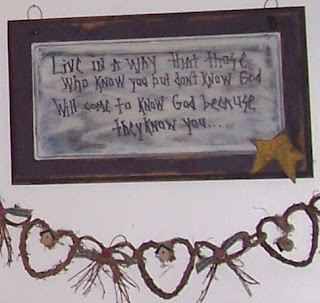 Live in a way that those
who know you but don't know God
Will come to know God because
they know you....